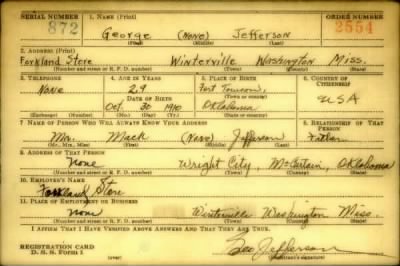 SERIAL NUMBER 1. NAME (Print) ORDER NUMBER
872 George (None) Jefferson 2554
(First) (Middle) (Last)
2. ADDRESS (Print)
Forkland Store Winterville Washington Miss.
(Number and street or R. F. D. number) (Town) (County) (State)
3. TELEPHONE 4. AGE IN YEARS 5. PLACE OF BIRTH 6. COUNTRY OF CITIZENSHIP
None 29 Fort Towson,
DATE OF BIRTH (Town or county)
Oct. 30 1910 Oklahoma USA
(Exchange) (Number) (Mo.) (Day) (Yr.) (State or country)
7. NAME OF PERSON WHO WILL ALWAYS KNOW YOUR ADDRESS 8. RELATIONSHIP OF THAT PERSON
Mr. Mack (None) Jefferson Father
(Mr., Mrs., Miss) (First) (Middle) (Last)
9. ADDRESS OF THAT PERSON
None Wright City, McCurtain, Oklahoma
(Number and street or R. F. D. number) (Town) (County) (State)
10. EMPLOYER'S NAME
Forkland Store
11. PLACE OF EMPLOYMENT OR BUSINESS
None Winterville Washington Miss.
(Number and street or R. F. D. number) (Town) (County) (State)
I AFFIRM THAT I HAVE VERIFIED ABOVE ANSWERS AND THAT THEY ARE TRUE.
REGISTRATION CARD
D. S. S. Form 1 (over) Geo Jefferson
(Registrant's signature)